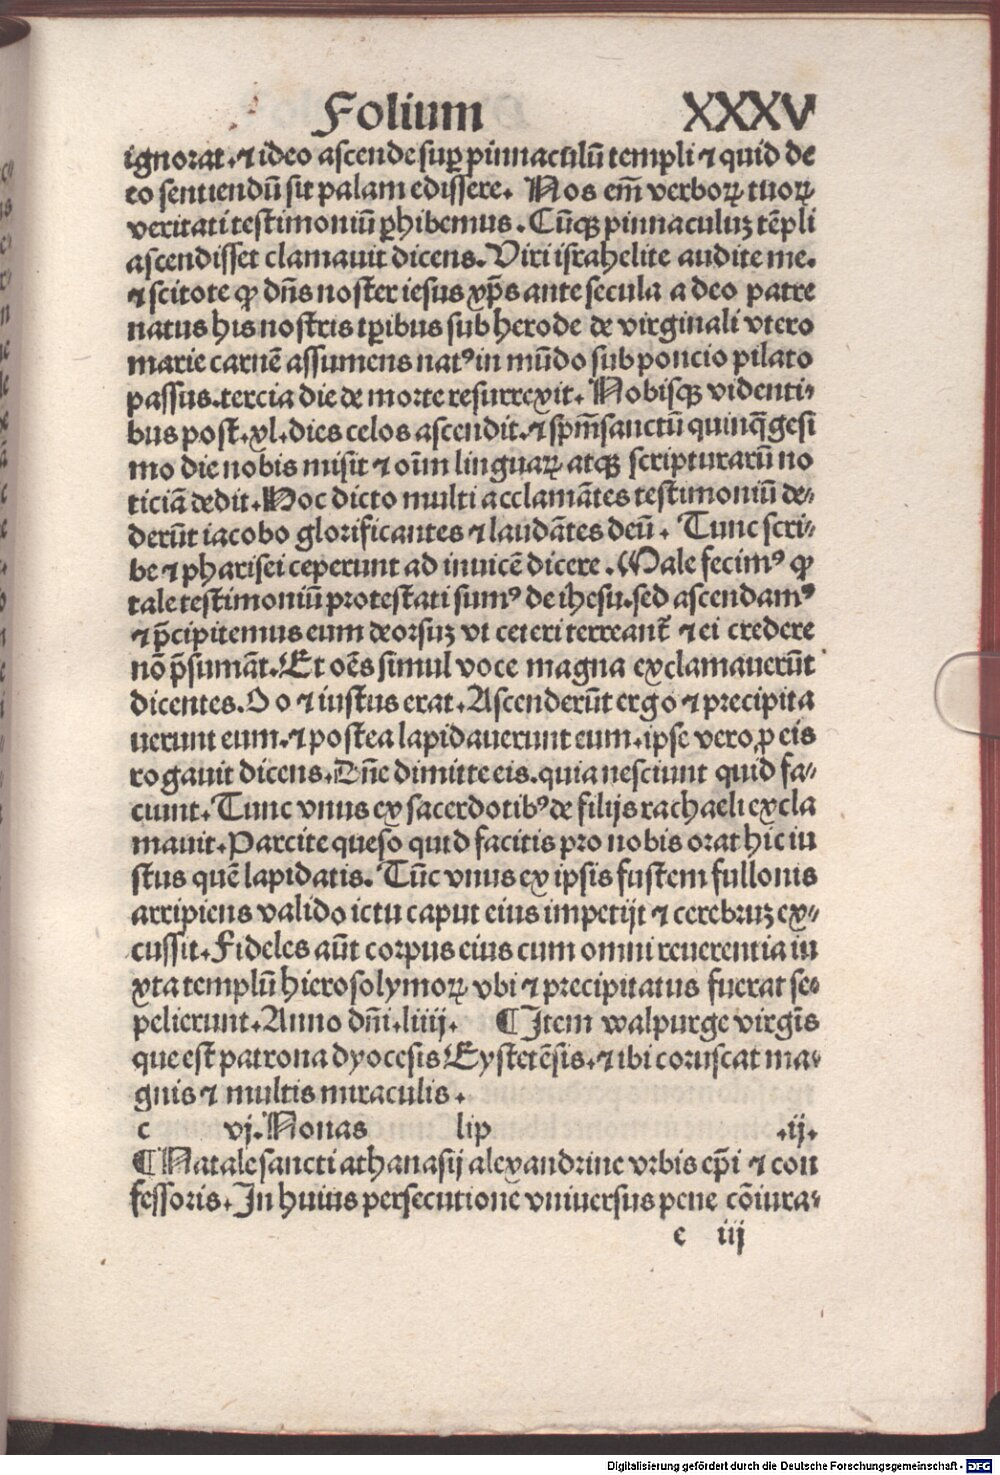 Folium XXXV
ignorat. ⁊ ideo ascende suꝑ pinnaculū templi ⁊ quid de
eo sentiendū sit palam edissere. Nos em̄ verboꝝ tuoꝝ
veritati testimoniū ꝑhibemus. Cūqꝫ pinnaculuꝫ tēpli
ascendisset clamauit dicens. Viri israhelite audite me.
⁊ scitote ꝙ dn̄s noster iesus xp̄s ante secula a deo patre
natus his nostris tꝑibus sub herode de virginali vtero
marie carnē assumens natꝰ in mūdo sub poncio pilato
passus. tercia die de morte resurrexit. Nobisqꝫ videnti⸗
bus post. xl. dies celos ascendit. ⁊ spm̄ sanctū quinq̄gesi
mo die nobis misit ⁊ oīm linguaꝝ atqꝫ scripturarū no
ticiā dedit. Hoc dicto multi acclamātes testimoniū de⸗
derūt iacobo glorificantes ⁊ laudātes deū. Tunc scri⸗
be ⁊ pharisei ceperunt ad inuicē dicere. Male fecimꝰ ꝙ
tale testimoniū protestati sumꝰ de ihesu. sed ascendamꝰ
⁊ p̄cipitemus eum deorsuꝫ vt ceteri terreant᷑ ⁊ ei credere
nō p̄sumāt. Et oēs simul voce magna exclamauerūt
dicentes. O o ⁊ iustus erat. Ascenderūt ergo ⁊ precipita
uerunt eum. ⁊ postea lapidauerunt eum. ipse vero ꝓ eis
rogauit dicens. Dn̄e dimitte eis. quia nesciunt quid fa⸗
ciunt. Tunc vnus ex sacerdotibꝰ de filijs rachaeli excla
mauit. Parcite queso quid facitis pro nobis orat hic iu
stus quē lapidatis. Tūc vnus ex ipsis fustem fullonis
arripiens valido ictu caput eius impetijt ⁊ cerebruꝫ ex⸗
cussit. Fideles aūt corpus eius cum omni reuerentia iu
xta templū hierosolymoꝝ vbi ⁊ precipitatus fuerat se⸗
pelierunt. Anno dn̄i. liiij. ¶ Item walpurge virgīs
que est patrona dyocesis Eystetēsis. ⁊ ibi coruscat ma⸗
gnis ⁊ multis miraculis.
c vj. Nonas lip .ij.
¶ Natale sancti athanasij alexandrine vrbis ep̄i ⁊ con
fessoris. In huius persecutione vniuersus pene cōiura⸗
e iij
Digitalisierung gefördert durch die Deutsche Forschungsgemeinschaft - DFG